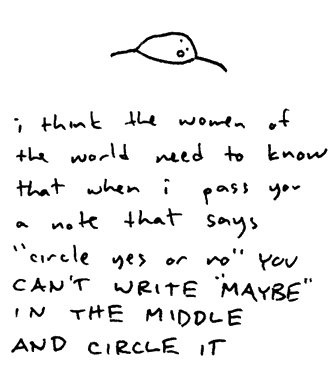 i think the women of
the world need to know
that when i pass you
a note that says
"circle yes or no" YOU
CAN'T WRITE "MAYBE"
IN THE MIDDLE
AND CIRCLE IT